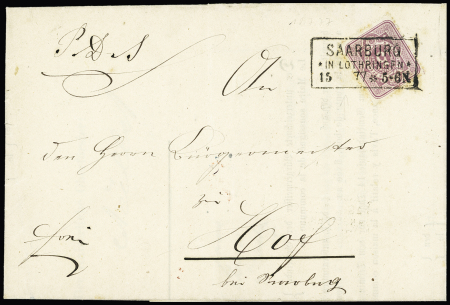 P. D. S
SAARBURG
* IN LOTHRINGEN *
15 5-6N
An
den Herrn Bürgermeister
zu
frei
Hoff
bei Saarburg